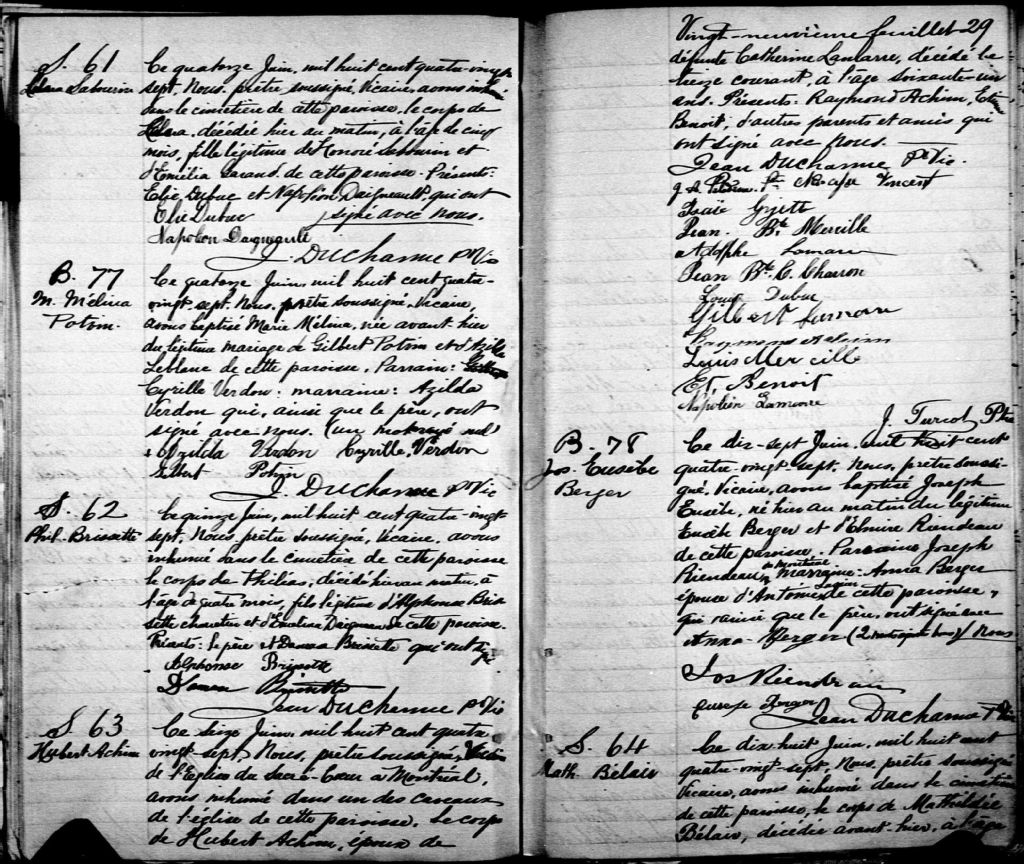 S. 61
Sabourin
Ce quatorze Juin, mil huit cent quatre-vingt
sept, Nous, prêtre soussigné, Vicaire, avons
dans le cimetière de cette paroisse, le corps de
décédée hier au matin, à l'âge de cinq
mois, fille légitime de Honoré Sabourin et
d'Emélia de cette paroisse. Présents:
Elie Dubuc et Napoléon Daigneault, qui ont
Elie Dubuc signé avec nous.
Napoléon Daigneault
J. DUCharme Ptr Vic
B. 77
M. Mélina
Potvin.
Ce quatorze Juin, mil huit cent quatre-
vingt-sept, Nous, prêtre soussigné, Vicaire,
avons baptisé Marie Mélina, née avant hier
du légitime mariage de Gilbert Potvin et d'Azilda
Leblanc de cette paroisse. Parrain:
Cyrille Verdon: marraine: Azilda
Verdon qui, ainsi que le père, ont
signé avec nous. (un mot rayé nul
Azilda Verdon Cyrille Verdon
Gilbert Potvin
J. DUCharme Ptr Vic
S. 62
Phil. Brissette
Ce quinze Juin, mil huit cent quatre-vingt
sept, Nous, prêtre soussigné, Vicaire, avons
inhumé dans le cimetière de cette paroisse
le corps de Philias, décédé hier au matin, à
l'âge de quatre mois, fils légitime d'Alphonse Bris
sette et d'Emelina de cette paroisse.
Présents: le père et Damas Brissette qui ont signé
Alphonse Brissette
Brissette
Jean DUCharme Ptr Vic
S. 63
Hubert Achim
Ce seize Juin, mil huit cent quatre
vingt-sept, Nous, prêtre soussigné,
de l'Eglise du Sacré-Cœur à Montréal,
avons inhumé dans un des caveaux
de l'église de cette paroisse, le corps
de Hubert Achim, époux de
Vingt-neuvième feuillet 29
défunte Catherine Lamarre, décédé le
treize courant, à l'âge soixante-un
ans. Présents: Raymond Achim, Et.
Benoit, d'autres parents et amis qui
ont signé avec Nous.
Jean DUCharme Ptr Vic.
Vincent
Isaïe Goyett
Jean Bte Mercille
Adolphe Lamarre
Jean Bte C. Charron
Louis Dubuc
Gilbert Lamarre
Raymond Achim
Louis Mercille
Et. Benoit
Napoléon Lamarre
J. Turcot Ptr
B. 78
Jos. Eusèbe
Berger
Ce dix-sept Juin, mil huit cent
quatre-vingt sept, Nous, prêtre soussi-
gné, Vicaire, avons baptisé Joseph
Eusèbe, né hier au matin du légitime
Eusèbe Berger et d'Elmire Riendeau
de cette paroisse. Parrain: Joseph
Riendeau de Montréal Marraine: Anna Berger
épouse d'Antoine de cette paroisse,
qui ainsi que le père, ont signé avec
Anna Berger (2 mots) Nous
Jos Riendeau
Eusèbe Berger
Jean DUCharme Ptr Vic
S. 64
Math. Bélair
Ce dix huit Juin, mil huit cent
quatre-vingt-sept, Nous, prêtre soussigné
Vicaire, avons inhumé dans le cimetière
de cette paroisse, le corps de Mathilde
Bélair, décédée avant-hier, à l'âge